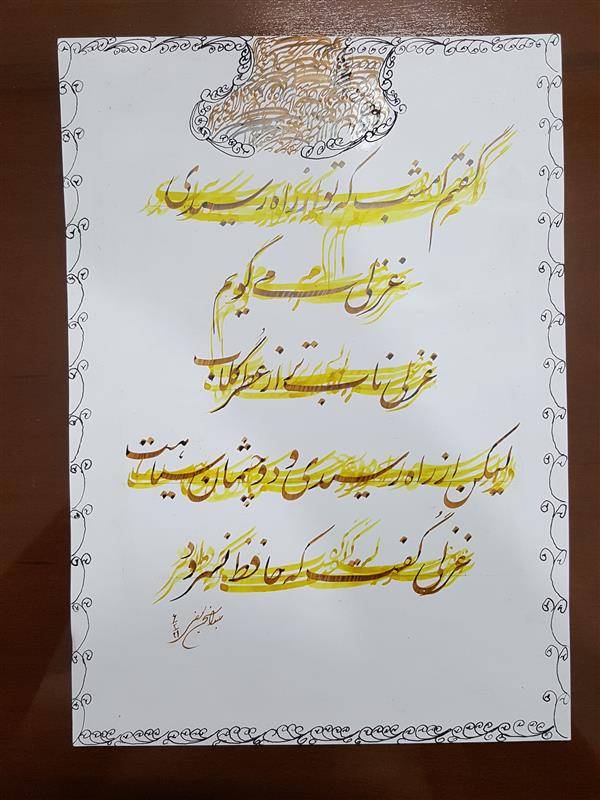 گفتم امشب که تو از راه رسیدی
غزلی می گویم
غزلی ناب تر از عطر گلاب
لیکن از راه رسیدی و دو چشمان سیاهت
غزلی گفت که حافظ نسرود